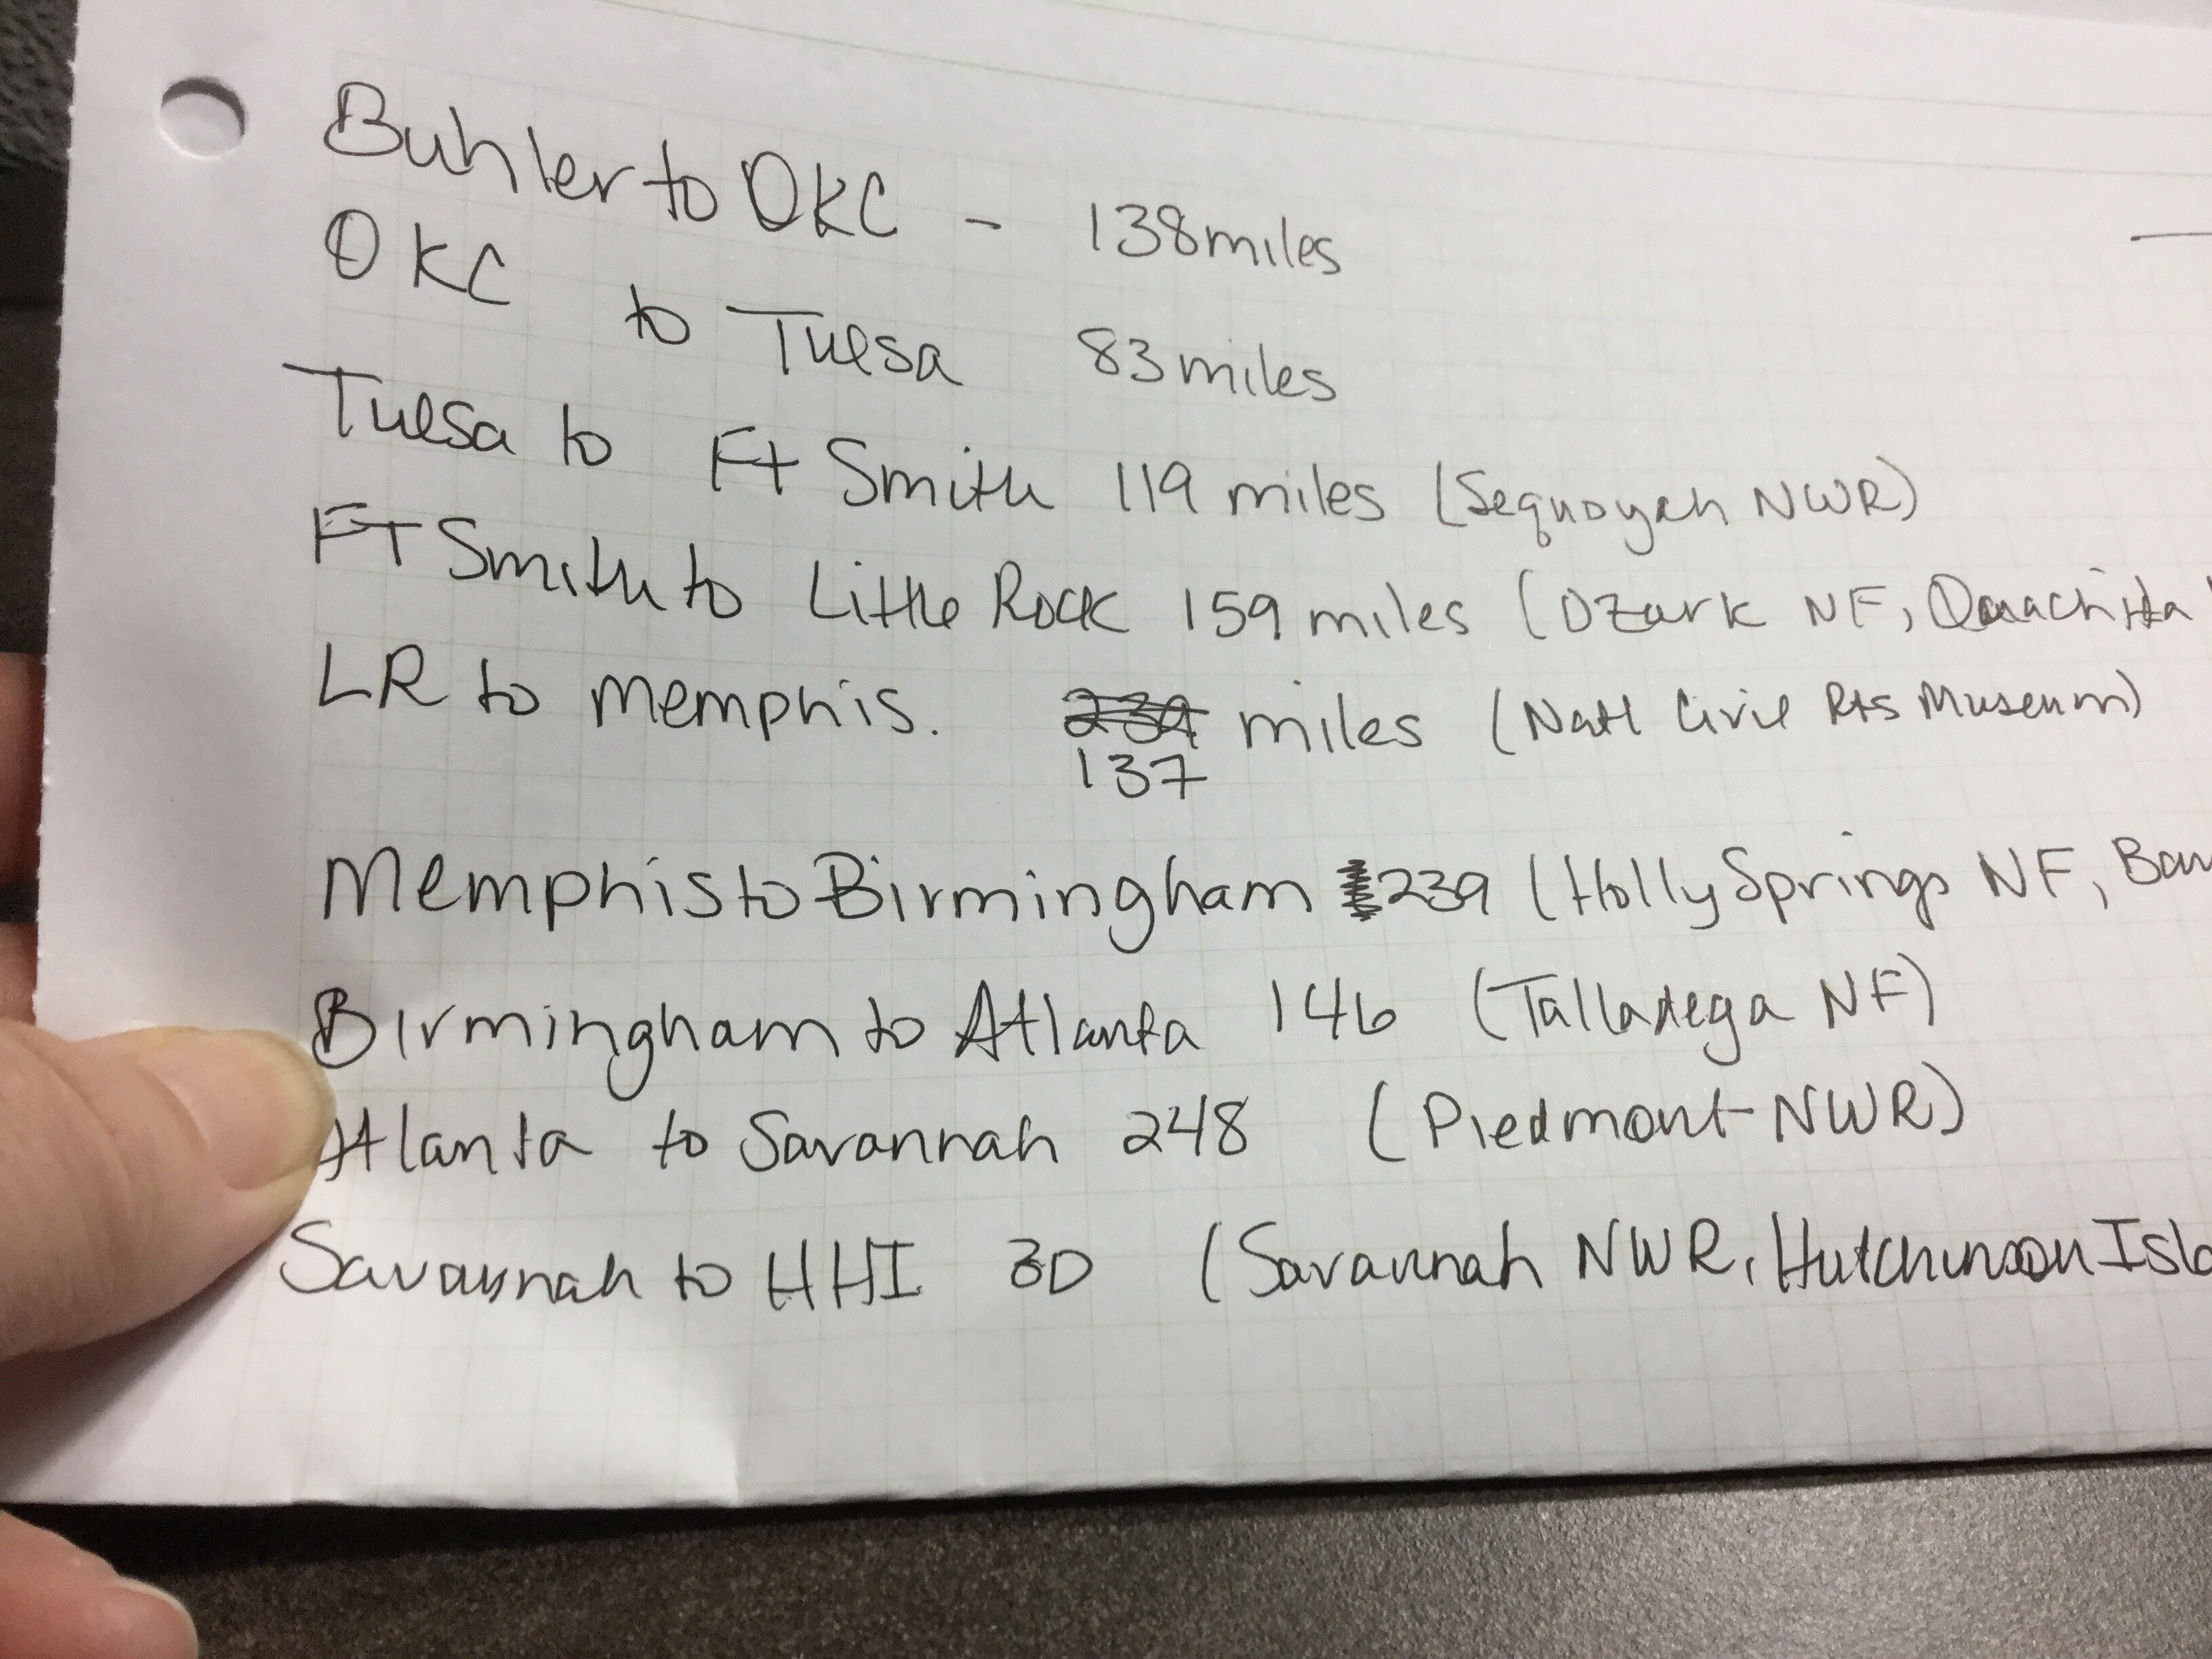 Buhler to OKC - 138 miles
OKC to Tulsa 83 miles
Tulsa to Ft Smith 119 miles (Sequoyah NWR)
FT Smith to Little Rock 159 miles (Ozark NF, Ouachita
LR to Memphis. 239 miles (Natl Civil Rts Museum)
137
Memphis to Birmingham 239 (Holly Springs NF, Ban
Birmingham to Atlanta 146 (Talladega NF)
Atlanta to Savannah 248 (Piedmont NWR)
Savannah to HHI 30 (Savannah NWR, Hutchinson Isla